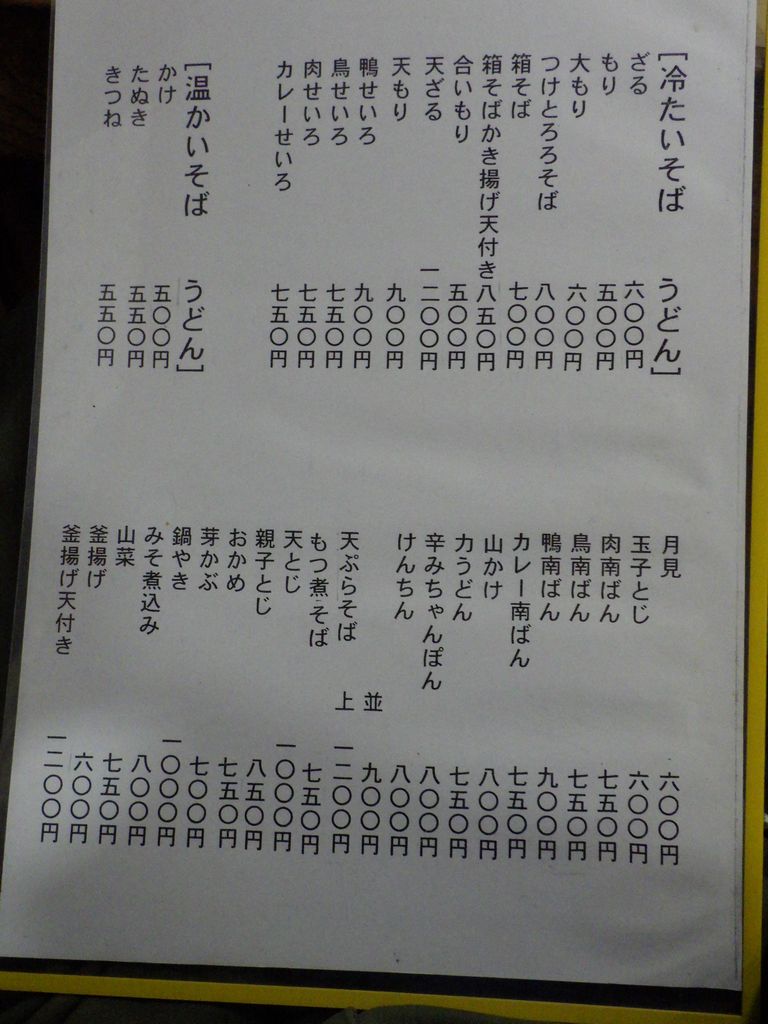 [冷たいそば うどん]
ざる 六〇〇円
もり 五〇〇円
大もり 六〇〇円
つけとろろそば 八〇〇円
箱そば 七〇〇円
箱そばかき揚げ天付き 八五〇円
合いもり 五〇〇円
天ざる 一二〇〇円
天もり 九〇〇円
鴨せいろ 九〇〇円
鳥せいろ 七五〇円
肉せいろ 七五〇円
カレーせいろ 七五〇円
[温かいそば うどん]
かけ 五〇〇円
たぬき 五五〇円
きつね 五五〇円
月見 六〇〇円
玉子とじ 六〇〇円
肉南ばん 七五〇円
鳥南ばん 七五〇円
鴨南ばん 九〇〇円
カレー南ばん 七五〇円
山かけ 八〇〇円
力うどん 七五〇円
辛みちゃんぽん 八〇〇円
けんちん 八〇〇円
並 九〇〇円
天ぷらそば 上 一二〇〇円
もつ煮そば 七五〇円
天とじ 一〇〇〇円
親子とじ 八五〇円
おかめ 七五〇円
芽かぶ 七〇〇円
鍋やき 一〇〇〇円
みそ煮込み 八〇〇円
山菜 七五〇円
釜揚げ 六〇〇円
釜揚げ天付き 一二〇〇円